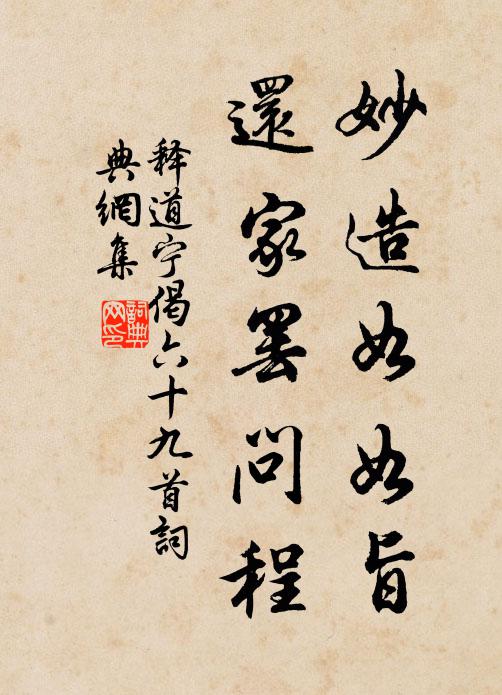 妙造如如旨
還家罢問程
释道宁偈六十九首詞
典網集
詞典
网印